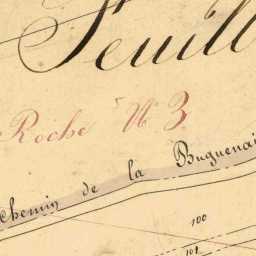 Feuill
Roche N 3.
Chemin de la Buguenai
100
101